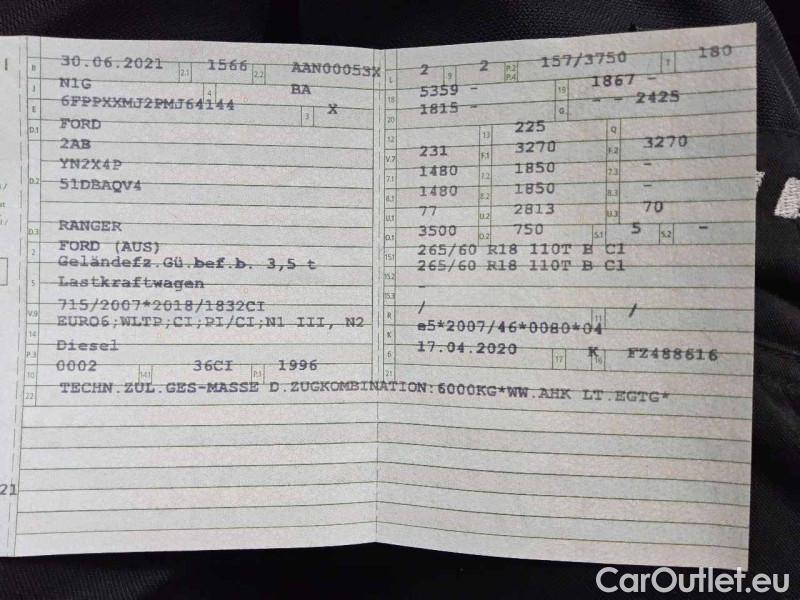 B 30.06.2021 2.1 1566 2.2 AAN00053X
J N1G 4 BA
E 6FPPXXMJ2PMJ64144 3 X
D.1 FORD
2AB
D.2 YN2X4P
51DBAQV4
D.3 RANGER
2 FORD (AUS)
5 Geländefz.Gü.bef.b. 3,5 t
Lastkraftwagen
V.9 715/2007*2018/1832CI
14 EURO6;WLTP;CI;PI/CI;N1 III, N2
P.3 Diesel
10 0002 14.1 36CI P.1 1996
22 TECHN.ZUL.GES-MASSE D.ZUGKOMBINATION:6000KG*WW.AHK LT.EGTG*
L 2 9 2 P.2 P.4 157/3750 T 180
18 5359 - 19 1867 -
20 1815 - G - - 2425
12 13 225 Q
V.7 231 F.1 3270 F.2 3270
7.1 1480 7.2 1850 7.3 -
8.1 1480 8.2 1850 8.3 -
U.1 77 U.2 2813 U.3 70
O.1 3500 O.2 750 S.1 5 S.2 -
15.1 265/60 R18 110T B C1
15.2 265/60 R18 110T B C1
15.3 -
R / 11 /
K e5*2007/46*0080*04
6 17.04.2020 17 K 16 FZ488616
21
21
CarOutlet.eu